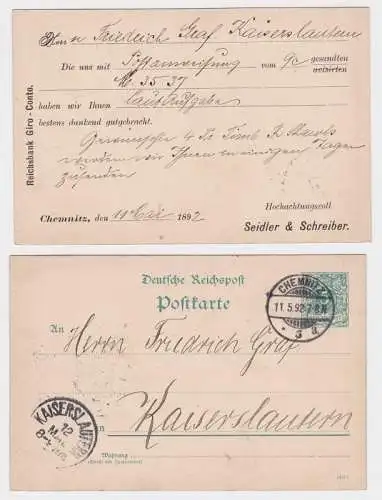 Herrn Friedrich Graf Kaiserslautern
Die uns mit Postanweisung vom 9c gesandten
M. 35.37
haben wir Ihnen laut Aufgabe
bestens dankend gutgebracht.
Gewünschte 4
werden wir Ihnen in einigen Tagen
zusenden
Reichsbank Giro-Conto.
Hochachtungsvoll
Chemnitz, den 10 Mai 1892
Seidler & Schreiber.
Deutsche Reichspost
Postkarte
CHEMNITZ
11.5.92
3 a
An Herrn Friedrich Graf
in Kaiserslautern
KAISERSLAUTERN
12
Wohnung